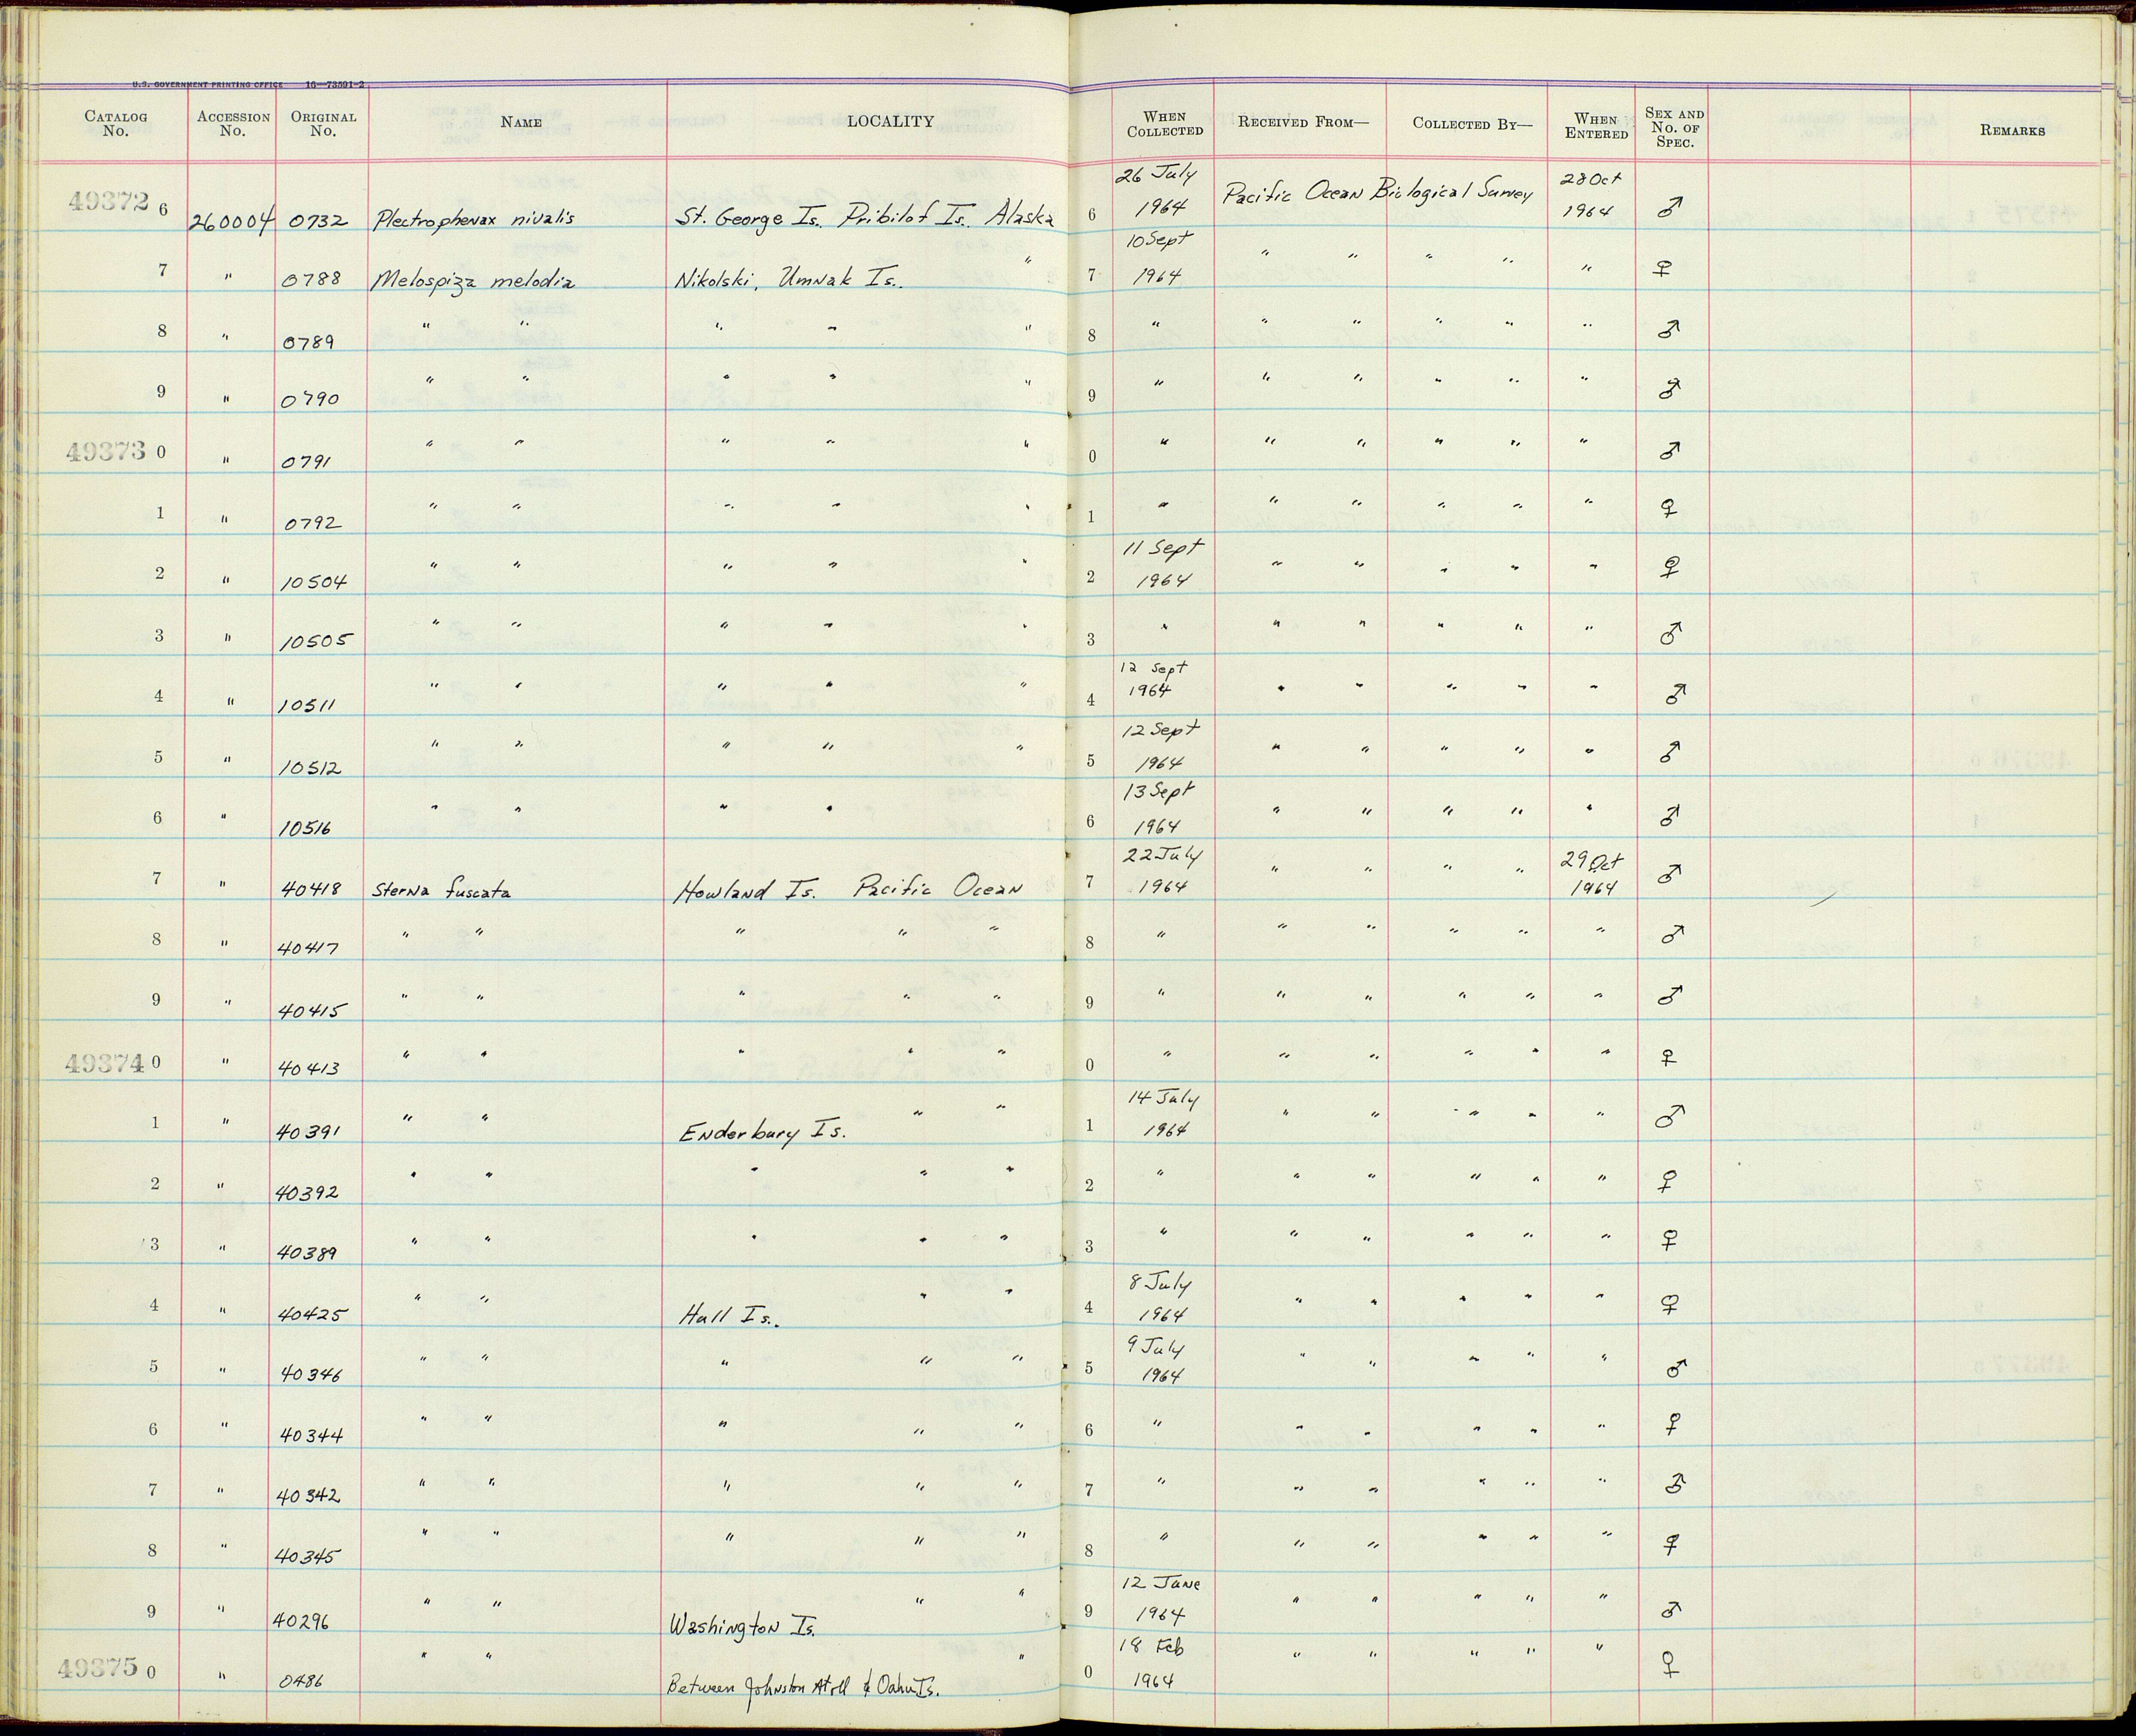 U.S. GOVERNMENT PRINTING OFFICE 16—73591-2
CATALOG No. ACCESSION No. ORIGINAL No. NAME LOCALITY WHEN COLLECTED RECEIVED FROM— COLLECTED BY— WHEN ENTERED SEX AND No. OF SPEC. REMARKS
49372 6 260004 0732 Plectrophenax nivalis St. George Is. Pribilof Is. Alaska 6 26 July 1964 Pacific Ocean Biological Survey 28 Oct 1964 ♂
7 " 0788 Melospiza melodia Nikolski, Umnak Is. " 7 10 Sept 1964 " " " " " ♀
8 " 0789 " " " " " 8 " " " " " " ♂
9 " 0790 " " " " " 9 " " " " " " ♂
49373 0 " 0791 " " " " " 0 " " " " " " ♂
1 " 0792 " " " " " 1 " " " " " " ♀
2 " 10504 " " " " " 2 11 Sept 1964 " " " " " ♀
3 " 10505 " " " " " 3 " " " " " " ♂
4 " 10511 " " " " " 4 12 Sept 1964 " " " " " ♂
5 " 10512 " " " " " 5 12 Sept 1964 " " " " " ♂
6 " 10516 " " " " 6 13 Sept 1964 " " " " " ♂
7 " 40418 Sterna fuscata Howland Is. Pacific Ocean 7 22 July 1964 " " " " 29 Oct 1964 ♂
8 " 40417 " " " " " 8 " " " " " " ♂
9 " 40415 " " " " " 9 " " " " " " ♂
49374 0 " 40413 " " " " " 0 " " " " " " ♀
1 " 40391 " " Enderbury Is. " " 1 14 July 1964 " " " " " ♂
2 " 40392 " " " " " 2 " " " " " " ♀
3 " 40389 " " " " " 3 " " " " " " ♀
4 " 40425 " " Hull Is. " " 4 8 July 1964 " " " " " ♀
5 " 40346 " " " " " 5 9 July 1964 " " " " " ♂
6 " 40344 " " " " " 6 " " " " " " ♀
7 " 40342 " " " " " 7 " " " " " " ♂
8 " 40345 " " " " " 8 " " " " " " ♀
9 " 40296 " " Washington Is. " " 9 12 June 1964 " " " " " ♂
49375 0 " 0486 " " Between Johnston Atoll & Oahu Is. " 0 18 Feb 1964 " " " " " ♀